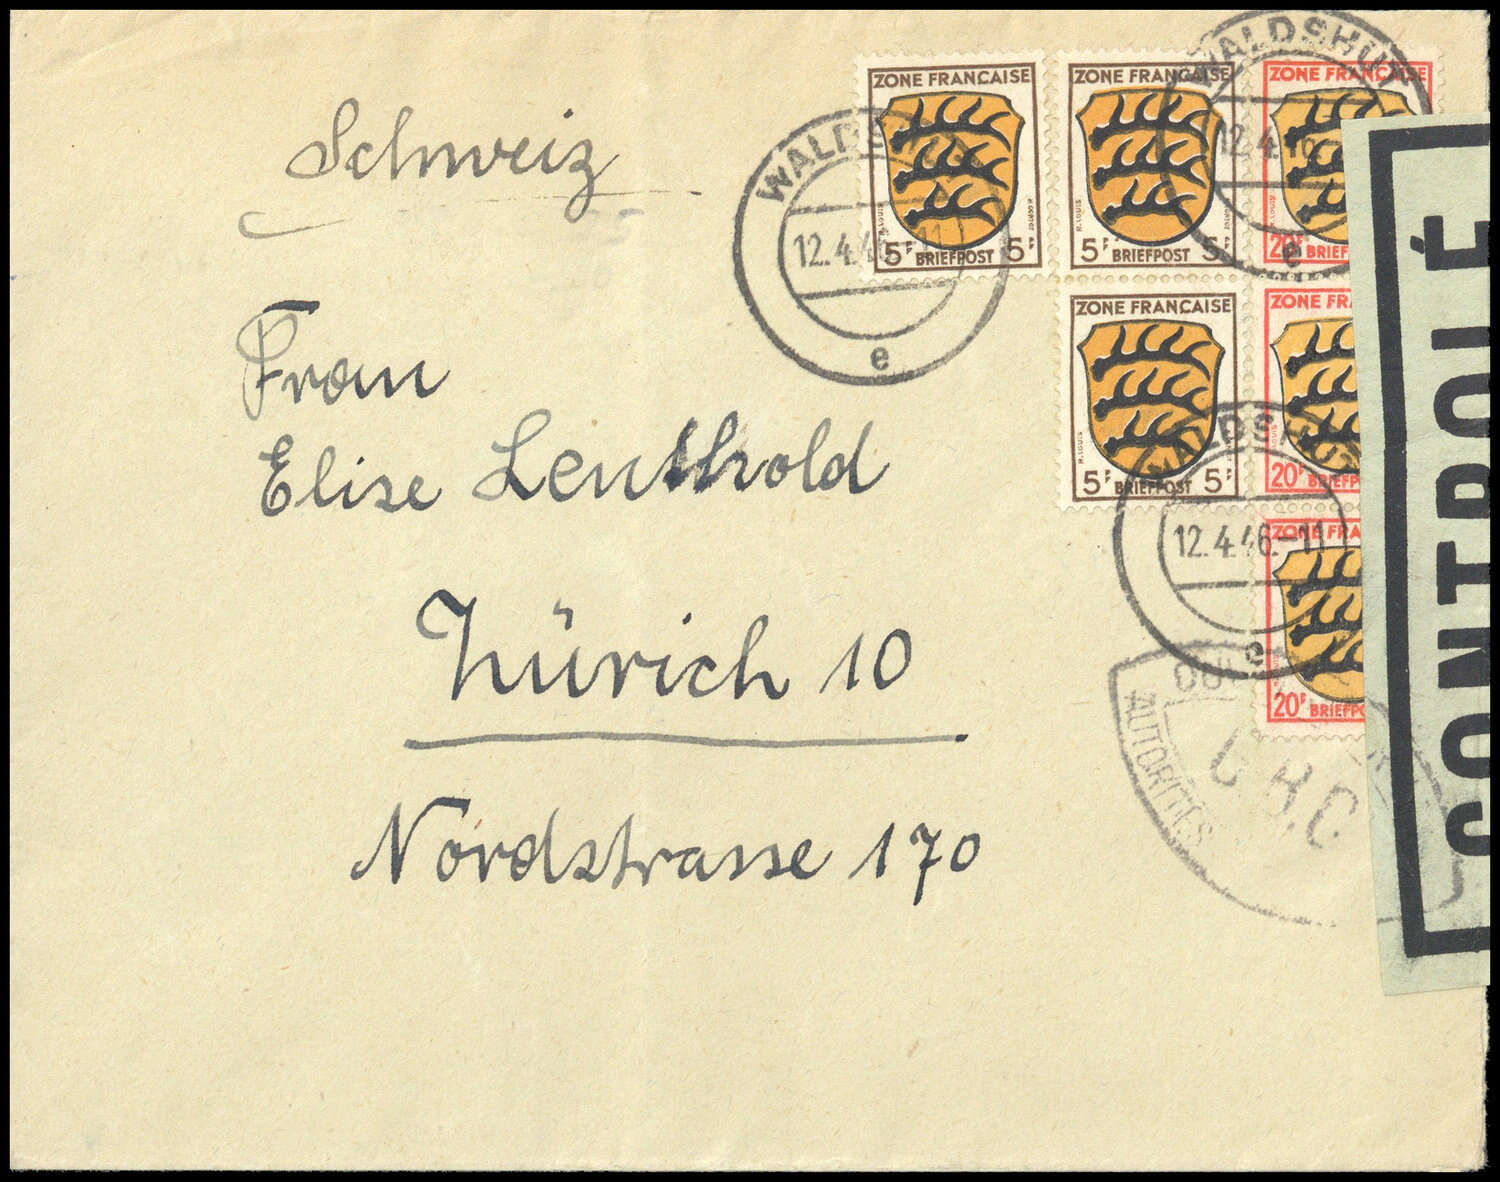 Schweiz
Frau
Elise Leuthold
Zürich 10
Nordstrasse 170
ZONE FRANCAISE
5F BRIEFPOST 5F
ZONE FRANCAISE
5F BRIEFPOST 5
ZONE FRANCAISE
20F BRIEF
ZONE FRANCAISE
5F BRIEFPOST 5F
ZONE FRA
20F BRIEFPO
ZONE FRA
20F BRIEFPO
WALDS
12.4.46-11
e
WALDSHUT
12.4.
e
WALDSHUT
12.4.46.-11
e
AUTORITÉS
CONTROLÉ